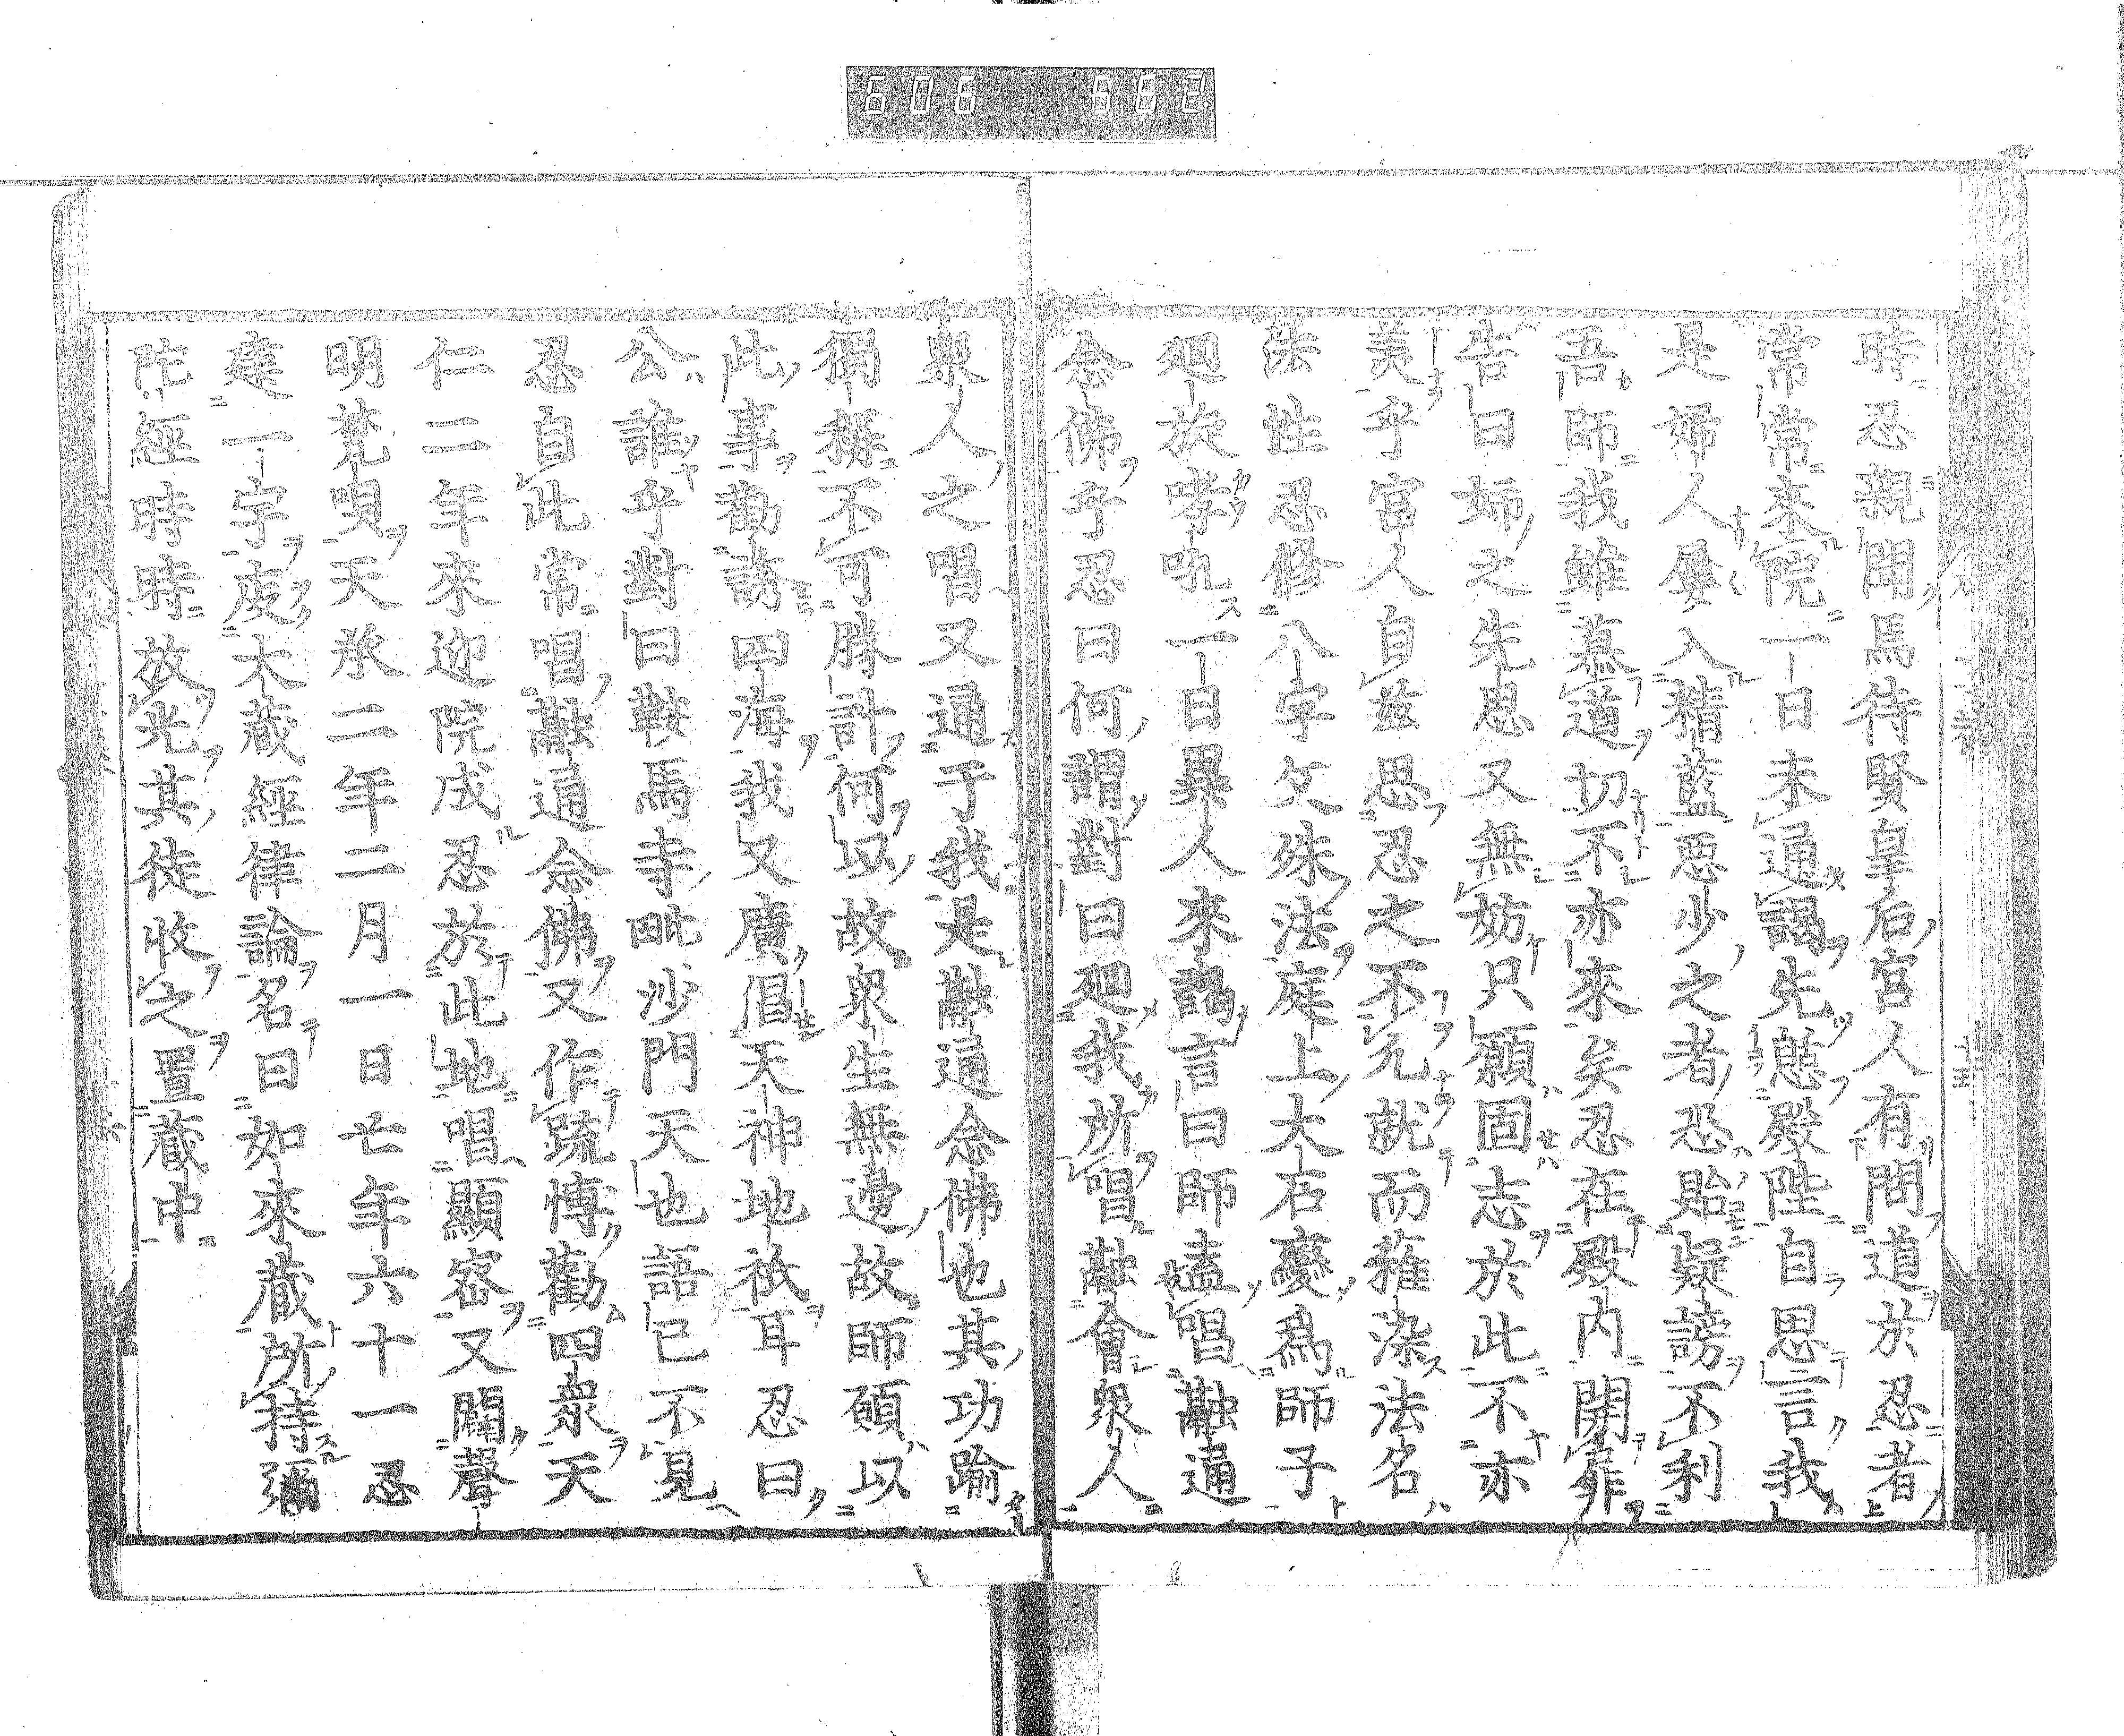 606 662
時忍親聞焉待賢皇后宮人有問道於忍者
常常來院一日未通謁先憩殿陛自思言我
是婦人屢入精藍惡少之者恐貽疑謗不利
吾師我雖慕道切不亦來矣忍在殿内開扉
告曰婦之先思又無妨只願固志於此不亦
美乎宮人自茲思忍之不允就而薙染法名
法性忍修八字文殊法庭上大石變爲師子
廻旋哮吼一日異人來謁言曰師盍唱融通
念佛乎忍曰何謂對曰廻我所唱融會衆人
衆人之唱又通于我是融通念佛也其功踰
獨稱不可勝計何以故衆生無邊故師願以
此事勸誘四海我又廣倡天神地祇耳忍曰
公誰乎對曰鞍馬寺毗沙門天也語已不見
忍自此常唱融通念佛又作疏愽勸四衆天
仁二年來迎院成忍於此地唱顯密又闡聲
明梵唄天承二年二月一日亡年六十一忍
建一宇庋大藏經律論名曰如來藏所持彌
陀經時時放光其徒收之置藏中